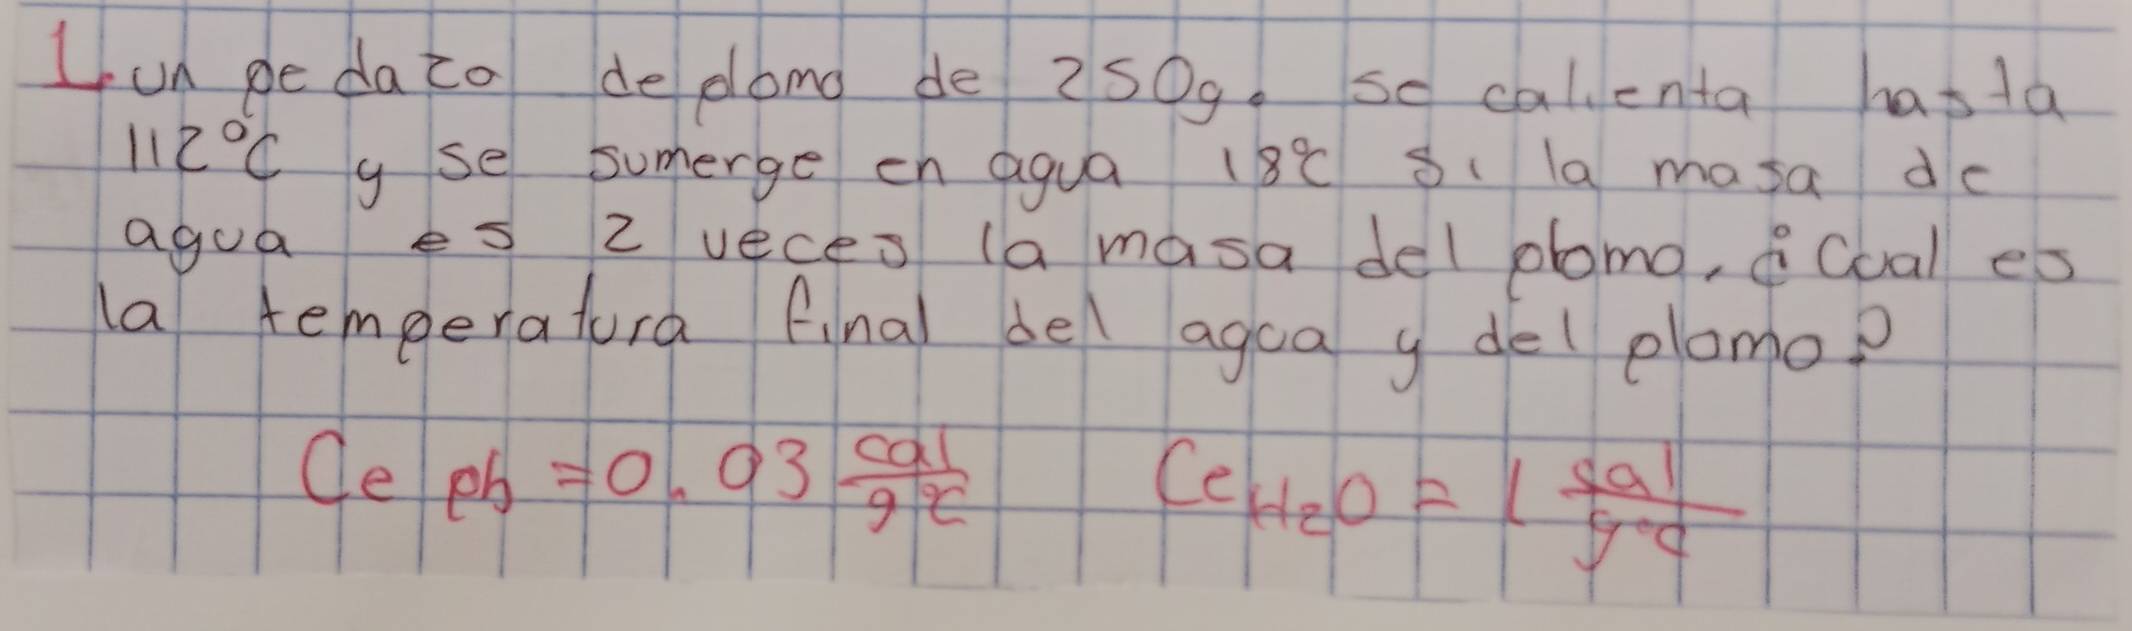 1. un pedazo de plomo de 250g. se calienta hasta
112°C y se sumerge en agua 18°C si la masa de
agua es 2 veces la masa del plomo, ¿Cual es
la temperatura final del agua y del plomo?
Ce pb = 0.03 cal/g°C   Ce H2O = 1 cal/g°C